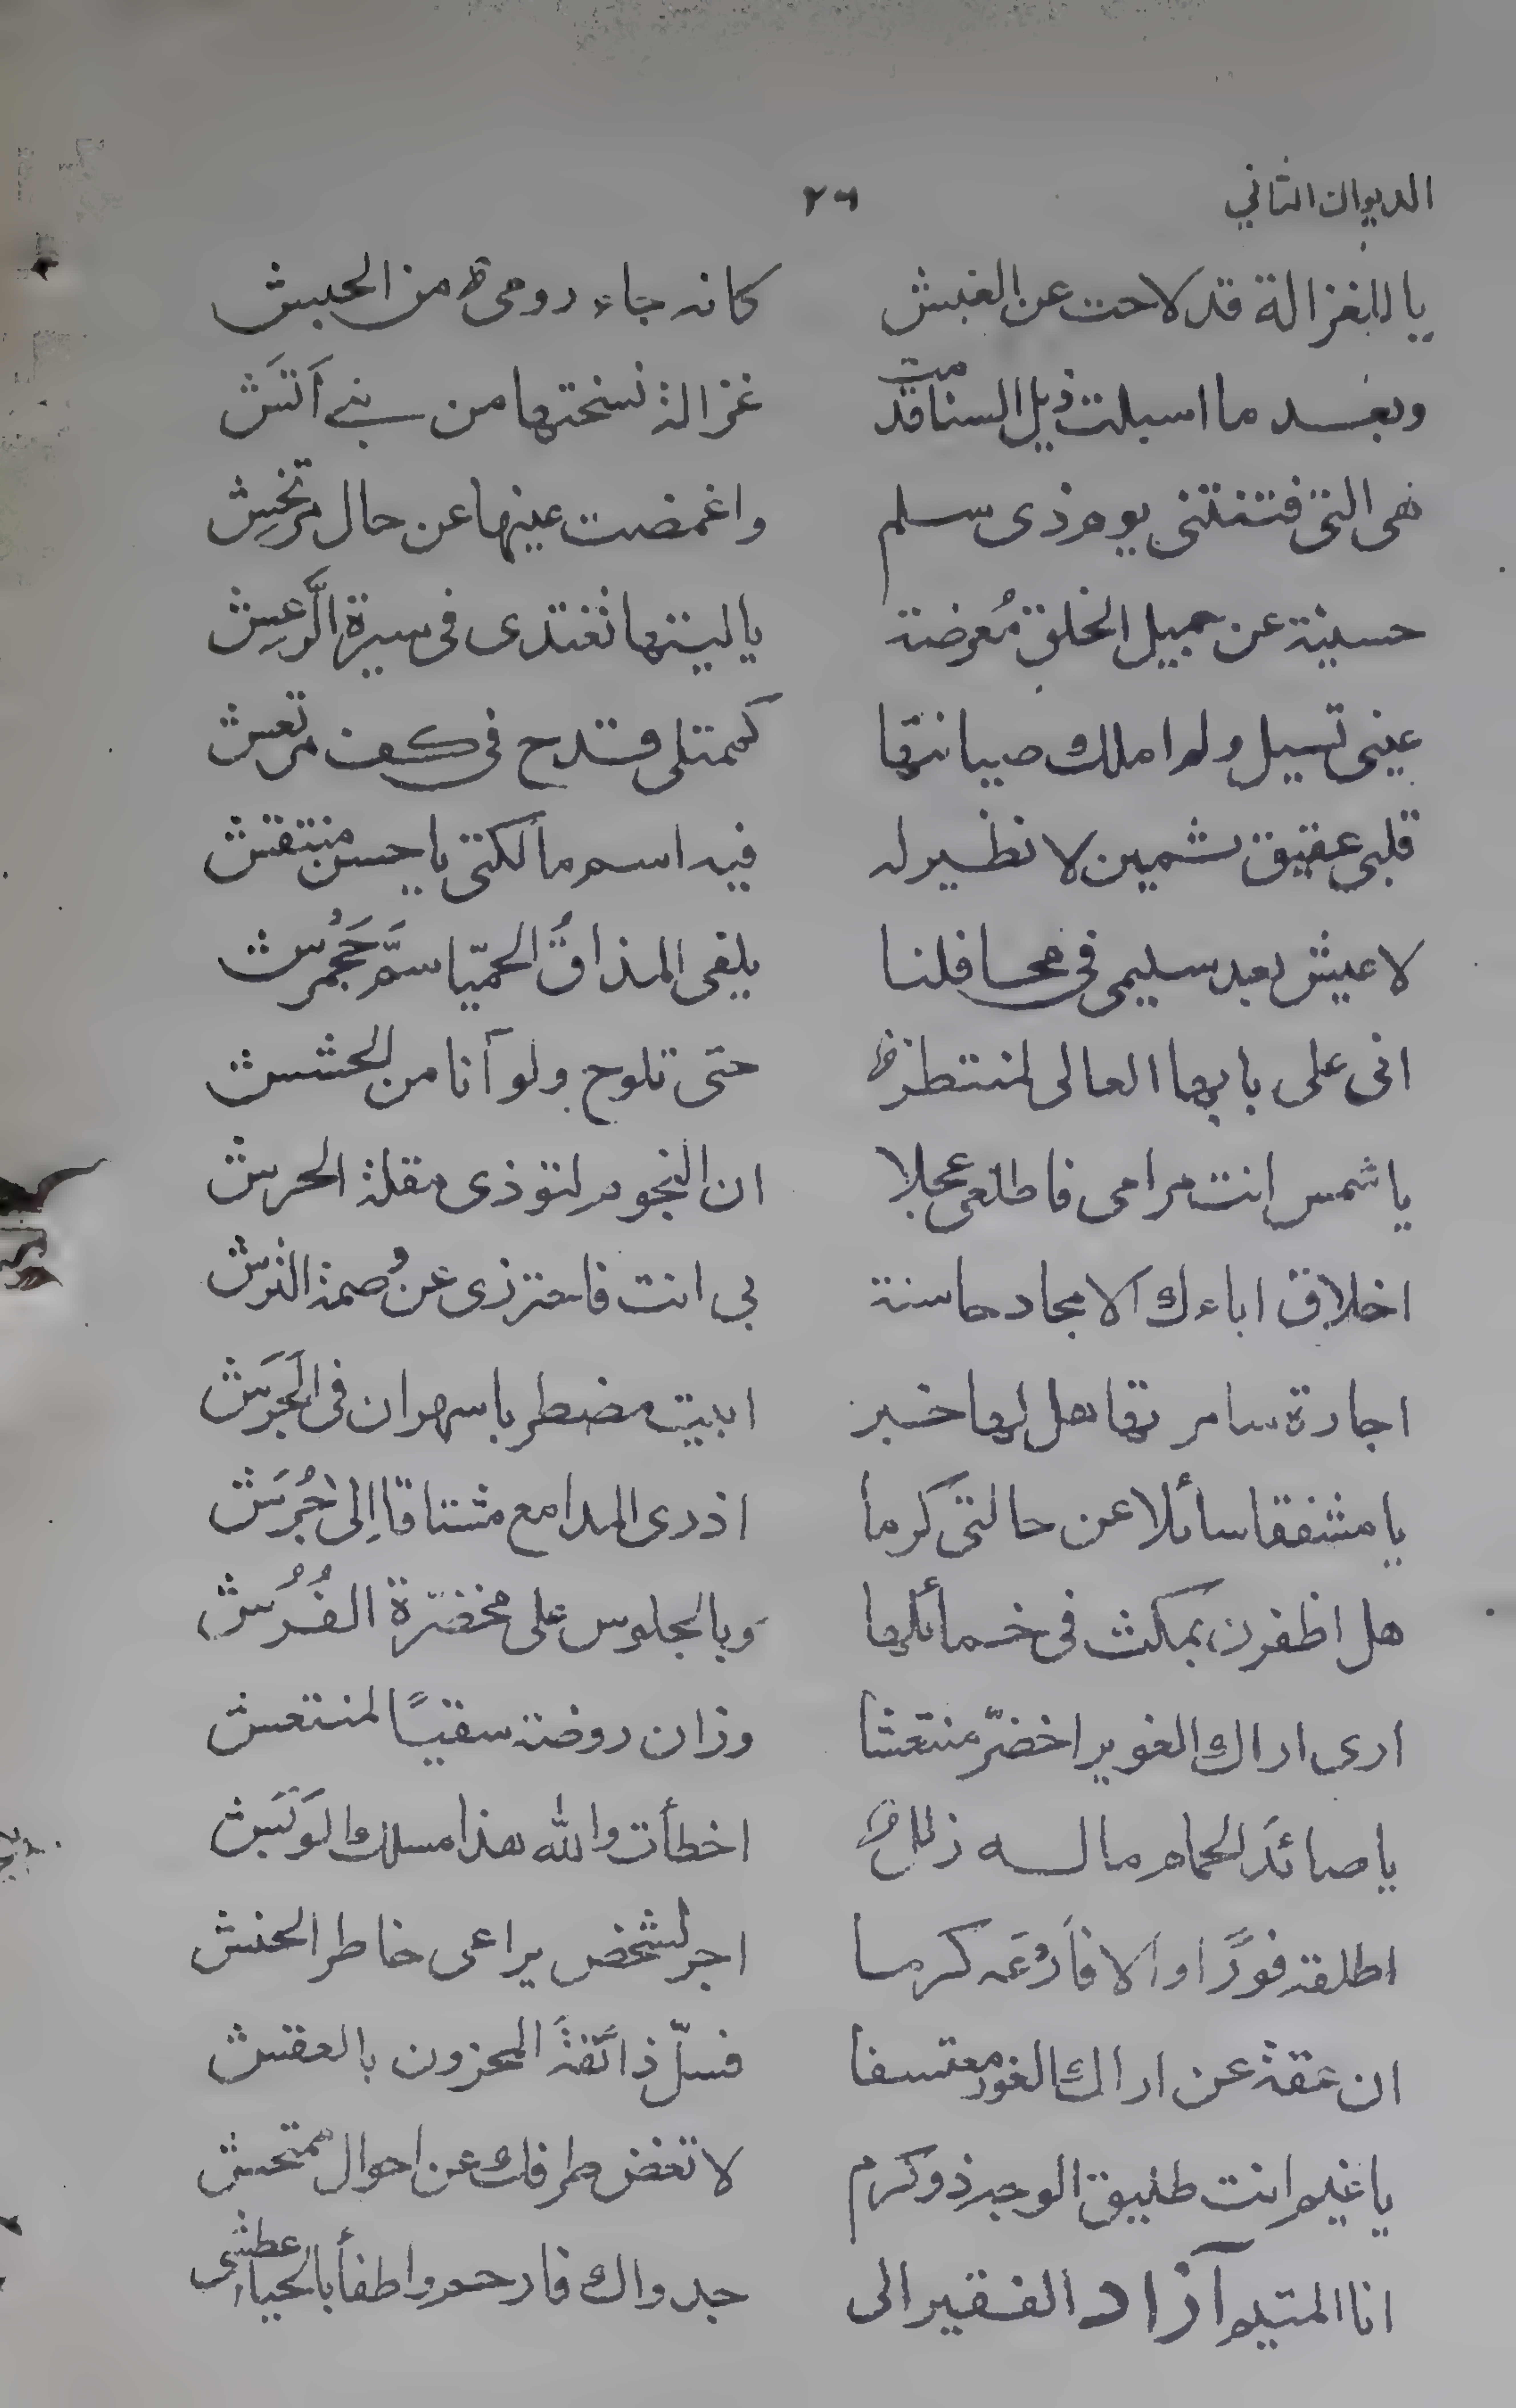 الديوان الثاني ٢٦
يا للغزالة قد لاحت عن الغبش كانه جاء رومى من الحبش
وبعد ما اسبلت ذيل السنا قدمت غزالة نسختها من بنى اَتَش
هى التى فتنتنى يوم ذى سلم واغمضت عينها عن حال مرتخش
حسينة عن جميل الخلق مُعرضة يا ليتها تغتدى فى سيرة الرَّعش
عينى تسيل ولم املك صيانتها كممتلى قدح فى كف مرتعش
قلبى عقيق ثمين لا نظير له فيه اسم مالكتى يا حسن منتقش
لا عيش بعد سليمى فى محافلنا يلفى المذاقُ الحميّا سمَّ جَحْمرش
انى على بابها العالى لمنتظر حتى تلوح ولو آنا من الحشش
يا شمس انت مرامى فاطلعى عجلا ان النجوم لتوذى مقلة الحرش
اخلاق اباءك الامجاد حاسنة بى انت فاحترزى عن وُصمة النرش
اجارة سامر تها هل لها خبر ابيت مضطربا سهران فى الجَرَش
يا مشفقا سائلا عن حالتى كرما اذرى المدامع مشتاقا إلى جُرَش
هل اظفرن بمكث فى خمائلها وبالجلوس على مخضرة الفُرُش
ارى اراك الغوير اخضرّ منتعشا وزان روضته سقيًا لمنتعش
يا صائدَ الحمام ما له زلل اخطأت والله هذا مسلك الوَبَش
اطلقه فورًا او الا فَارْعَه كرما اجر لشخص يراعى خاطر الحنش
ان عقة عن اراك الغور معتسفا فسلّ ذائقةَ المحزون بالعقش
يا غيم انت طليق الوجه ذو كرم لا تغض طرفك عن احوال ممتحش
انا المتيم آزاد الفقير الى جدواك فارحم واطفأ بالحياء عطشى